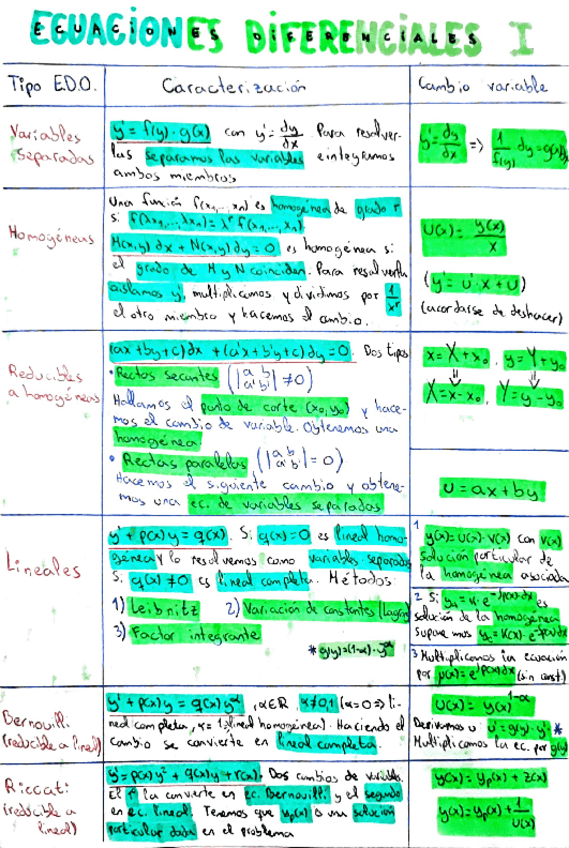 ECUACIONES DIFERENCIALES I
Tipo E.D.O.
Caracterización
Cambio variable
Variables
separadas
y' = f(y)·g(x) con y' = dy/dx. Para resolver-
las separamos las variables e integramos
ambos miembros
y' = dy/dx => 1/f(y) · dy = g(x)dx
Homogéneas
Una función f(x₁,..., xₙ) es homogénea de grado r
si f(λx₁,..., λxₙ) = λʳ f(x₁,..., xₙ)
M(x,y) dx + N(x,y) dy = 0 es homogénea si
el grado de M y N coinciden. Para resolverla
aislamos y', multiplicamos y dividimos por 1/xʳ
el otro miembro y hacemos el cambio.
U(x) = y(x)/x
(y' = u'·x + u)
(acordarse de deshacer)
Reducibles
a homogéneas
(ax+by+c)dx + (a'x+b'y+c)dy = 0. Dos tipos
• Rectas secantes (|a b a' b'| ≠ 0)
Hallamos el punto de corte (x₀,y₀) y hace-
mos el cambio de variable. Obtenemos una
homogénea.
x = X + x₀, y = Y + y₀
⇓ ⇓
X = x - x₀, Y = y - y₀
• Rectas paralelas (|a b a' b'| = 0)
Hacemos el siguiente cambio y obtene-
mos una ec. de variables separadas
u = ax + by
Lineales
y' + p(x)y = q(x). Si q(x)=0 es lineal homo-
génea y lo resolvemos como variables separadas
Si q(x) ≠ 0 es lineal completa. Métodos:
1) Leibnitz 2) Variación de constantes (Lagran)
3) Factor integrante
* g(y) = (1-α)·y^-α
1 y(x) = u(x)·v(x) con v(x)
solución particular de
la homogénea asociada
2 Si yₕ = K·e^-∫p(x)dx es
solución de la homogénea
Supone mos y_c = K(x)·e^-∫p(x)dx
3 Multiplicamos la ecuación
por μ(x) = e^∫p(x)dx (sin const)
Bernouilli
(reducible a lineal)
y' + p(x)y = q(x)y^α, α∈R α≠0,1 (α=0 => li-
neal completa, α=1 lineal homogénea). Haciendo el
cambio se convierte en lineal completa.
u(x) = y(x)^1-α
Derivamos u: u' = g(y)·y' *
Multiplicamos la ec. por g(y)
Riccati
(reducible a
lineal)
y' = p(x)y² + q(x)y + r(x). Dos cambios de variable.
El 1º la convierte en ec. Bernouilli y el segundo
en ec. lineal. Tenemos que yₚ(x) es una solución
particular dada en el problema
y(x) = yₚ(x) + z(x)
y(x) = yₚ(x) + 1/u(x)